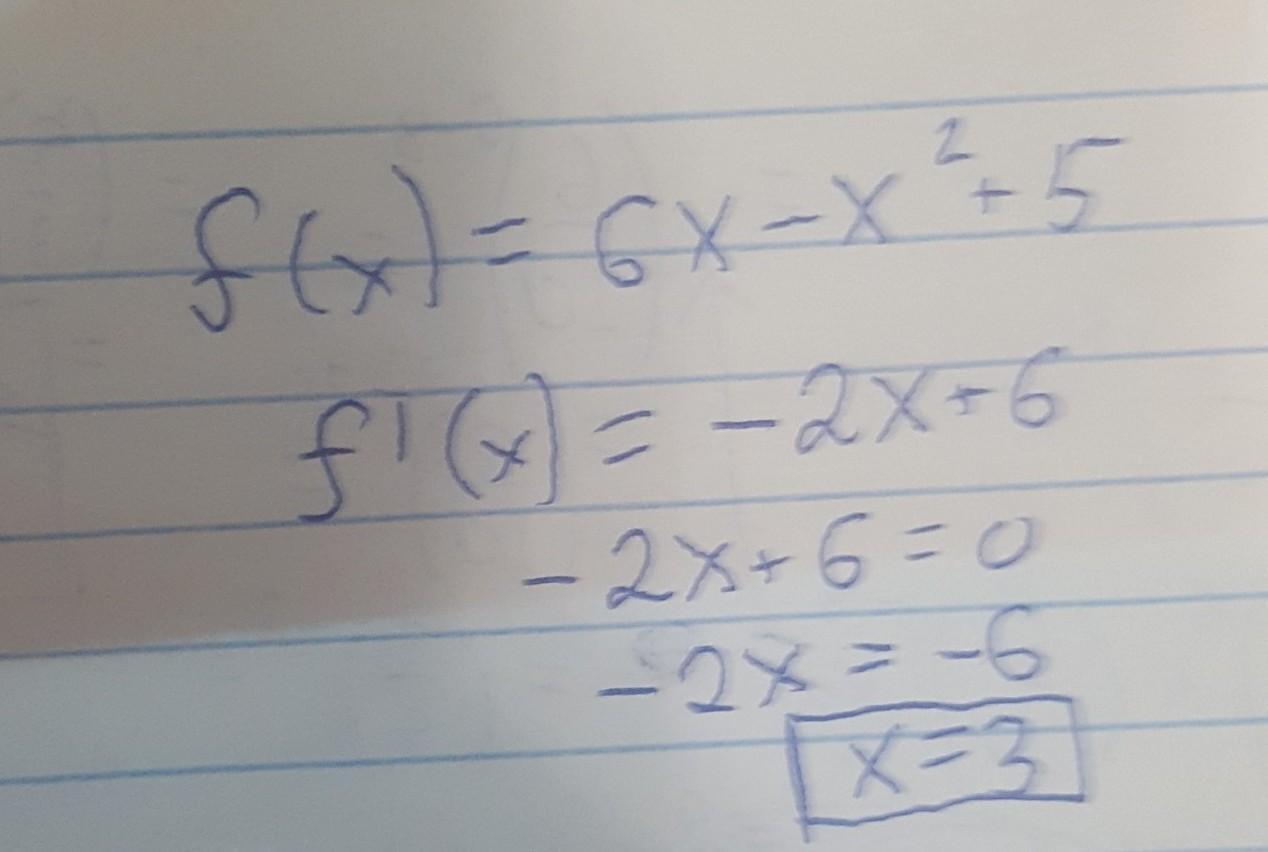 f(x) = 6x - x² + 5
f'(x) = -2x + 6
-2x + 6 = 0
-2x = -6
x = 3